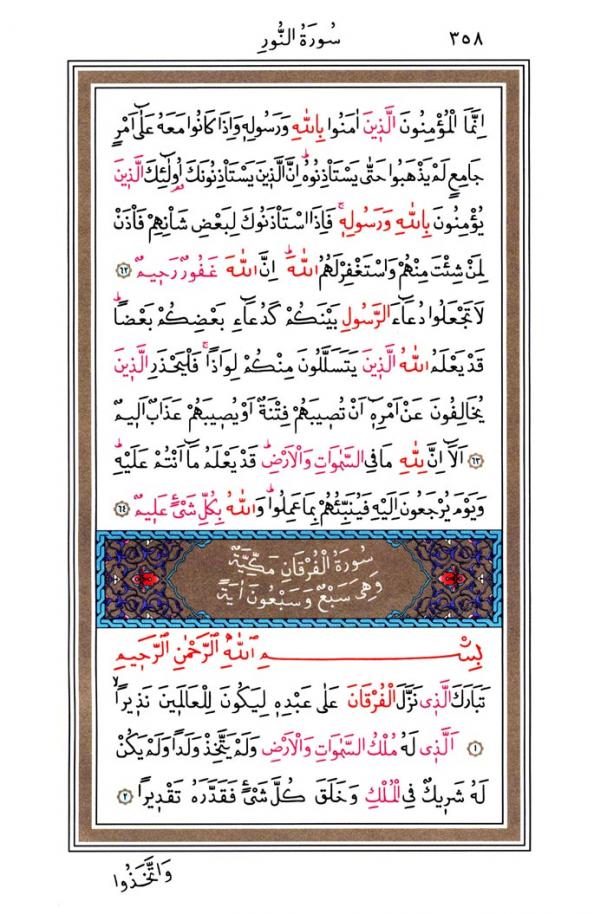 سُورَةُ النُّورِ ٣٥٨
اِنَّمَا الْمُؤْمِنُونَ الَّذ۪ينَ اٰمَنُوا بِاللّٰهِ وَرَسُولِه۪ وَاِذَا كَانُوا مَعَهُ عَلٰٓى اَمْرٍ
جَامِعٍ لَمْ يَذْهَبُوا حَتّٰى يَسْتَأْذِنُوهُۜ اِنَّ الَّذ۪ينَ يَسْتَأْذِنُونَكَ اُو۬لٰٓئِكَ الَّذ۪ينَ
يُؤْمِنُونَ بِاللّٰهِ وَرَسُولِه۪ۚ فَاِذَا اسْتَأْذَنُوكَ لِبَعْضِ شَأْنِهِمْ فَأْذَنْ
لِمَنْ شِئْتَ مِنْهُمْ وَاسْتَغْفِرْ لَهُمُ اللّٰهَۜ اِنَّ اللّٰهَ غَفُورٌ رَح۪يمٌ ٦٢
لَا تَجْعَلُوا دُعَٓاءَ الرَّسُولِ بَيْنَكُمْ كَدُعَٓاءِ بَعْضِكُمْ بَعْضاًۜ
قَدْ يَعْلَمُ اللّٰهُ الَّذ۪ينَ يَتَسَلَّلُونَ مِنْكُمْ لِوَاذاًۚ فَلْيَحْذَرِ الَّذ۪ينَ
يُخَالِفُونَ عَنْ اَمْرِه۪ٓ اَنْ تُص۪يبَهُمْ فِتْنَةٌ اَوْ يُص۪يبَهُمْ عَذَابٌ اَل۪يمٌ
٦٣ اَلَٓا اِنَّ لِلّٰهِ مَا فِي السَّمٰوَاتِ وَالْاَرْضِۜ قَدْ يَعْلَمُ مَٓا اَنْتُمْ عَلَيْهِۜ
وَيَوْمَ يُرْجَعُونَ اِلَيْهِ فَيُنَبِّئُهُمْ بِمَا عَمِلُواۜ وَاللّٰهُ بِكُلِّ شَيْءٍ عَل۪يمٌ ٦٤
سُورَةُ الْفُرْقَانِ مَكِّيَّةٌ
وَهِيَ سَبْعٌ وَسَبْعُونَ اٰيَةً
بِسْمِ اللّٰهِ الرَّحْمٰنِ الرَّح۪يمِ
تَبَارَكَ الَّذ۪ي نَزَّلَ الْفُرْقَانَ عَلٰى عَبْدِه۪ لِيَكُونَ لِلْعَالَم۪ينَ نَذ۪يراًۙ
١ اَلَّذ۪ي لَهُ مُلْكُ السَّمٰوَاتِ وَالْاَرْضِ وَلَمْ يَتَّخِذْ وَلَداً وَلَمْ يَكُنْ
لَهُ شَر۪يكٌ فِي الْمُلْكِ وَخَلَقَ كُلَّ شَيْءٍ فَقَدَّرَهُ تَقْد۪يراً ٢
وَاتَّخَذُوا